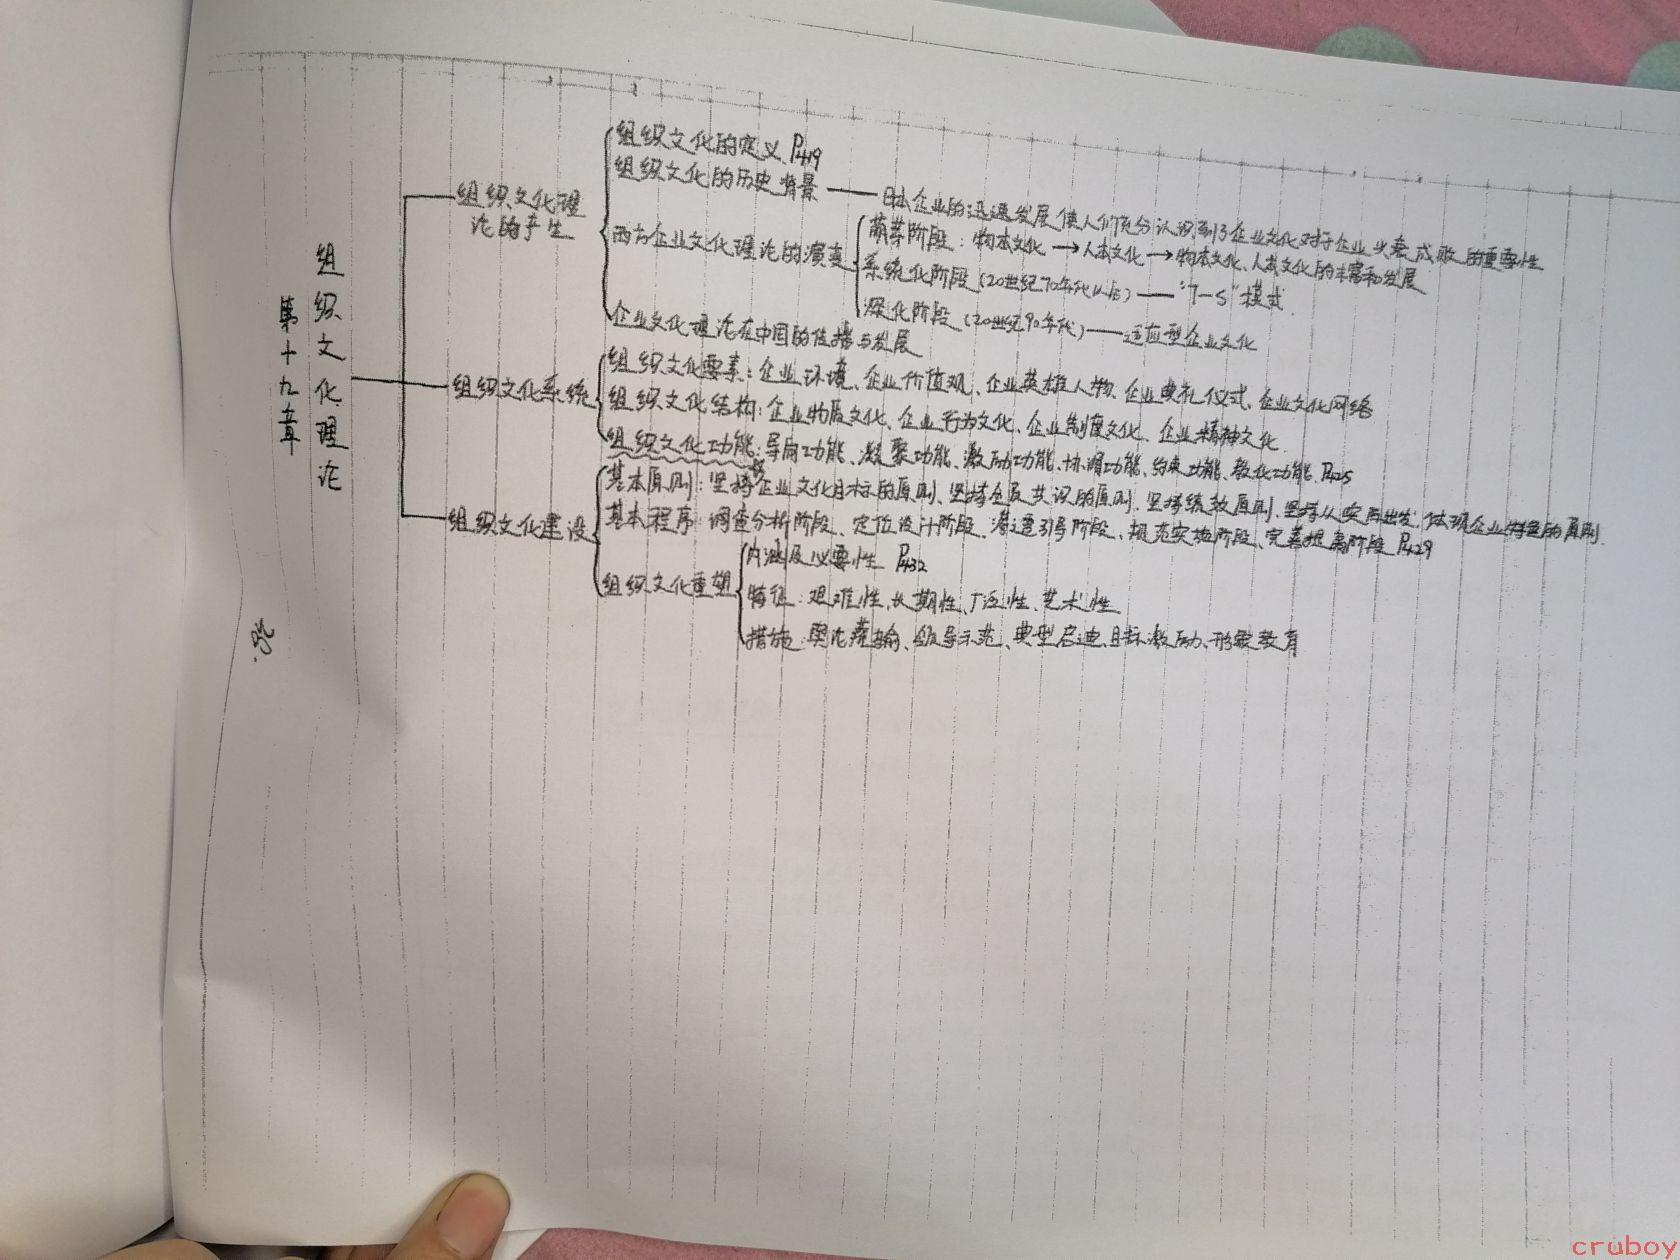 第十九章
组织文化理论
组织文化理
论的产生
组织文化的定义 P419
组织文化的历史背景
日本企业的迅速发展使人们充分认识到了企业文化对于企业兴衰成败的重要性
西方企业文化理论的演变
萌芽阶段：物本文化→人本文化→物本文化、人本文化的丰富和发展
系统化阶段（20世纪70年代以后）——“7-S”模式
深化阶段（20世纪90年代）——适应型企业文化
企业文化理论在中国的传播与发展
组织文化系统
组织文化要素：企业环境、企业价值观、企业英雄人物、企业典礼仪式、企业文化网络
组织文化结构：企业物质文化、企业行为文化、企业制度文化、企业精神文化
组织文化功能：导向功能、凝聚功能、激励功能、协调功能、约束功能、教化功能 P425
组织文化建设
基本原则：坚持企业文化目标的原则、坚持全员共识的原则、坚持绩效原则、坚持从实际出发，体现企业特色的原则
基本程序：调查分析阶段、定位设计阶段、灌透引导阶段、规范实施阶段、完善提高阶段 P429
组织文化重塑
内涵及必要性 P432
特征：艰难性、长期性、广泛性、艺术性
措施：舆论灌输、领导示范、典型启迪、目标激励、形象教育
cruboy